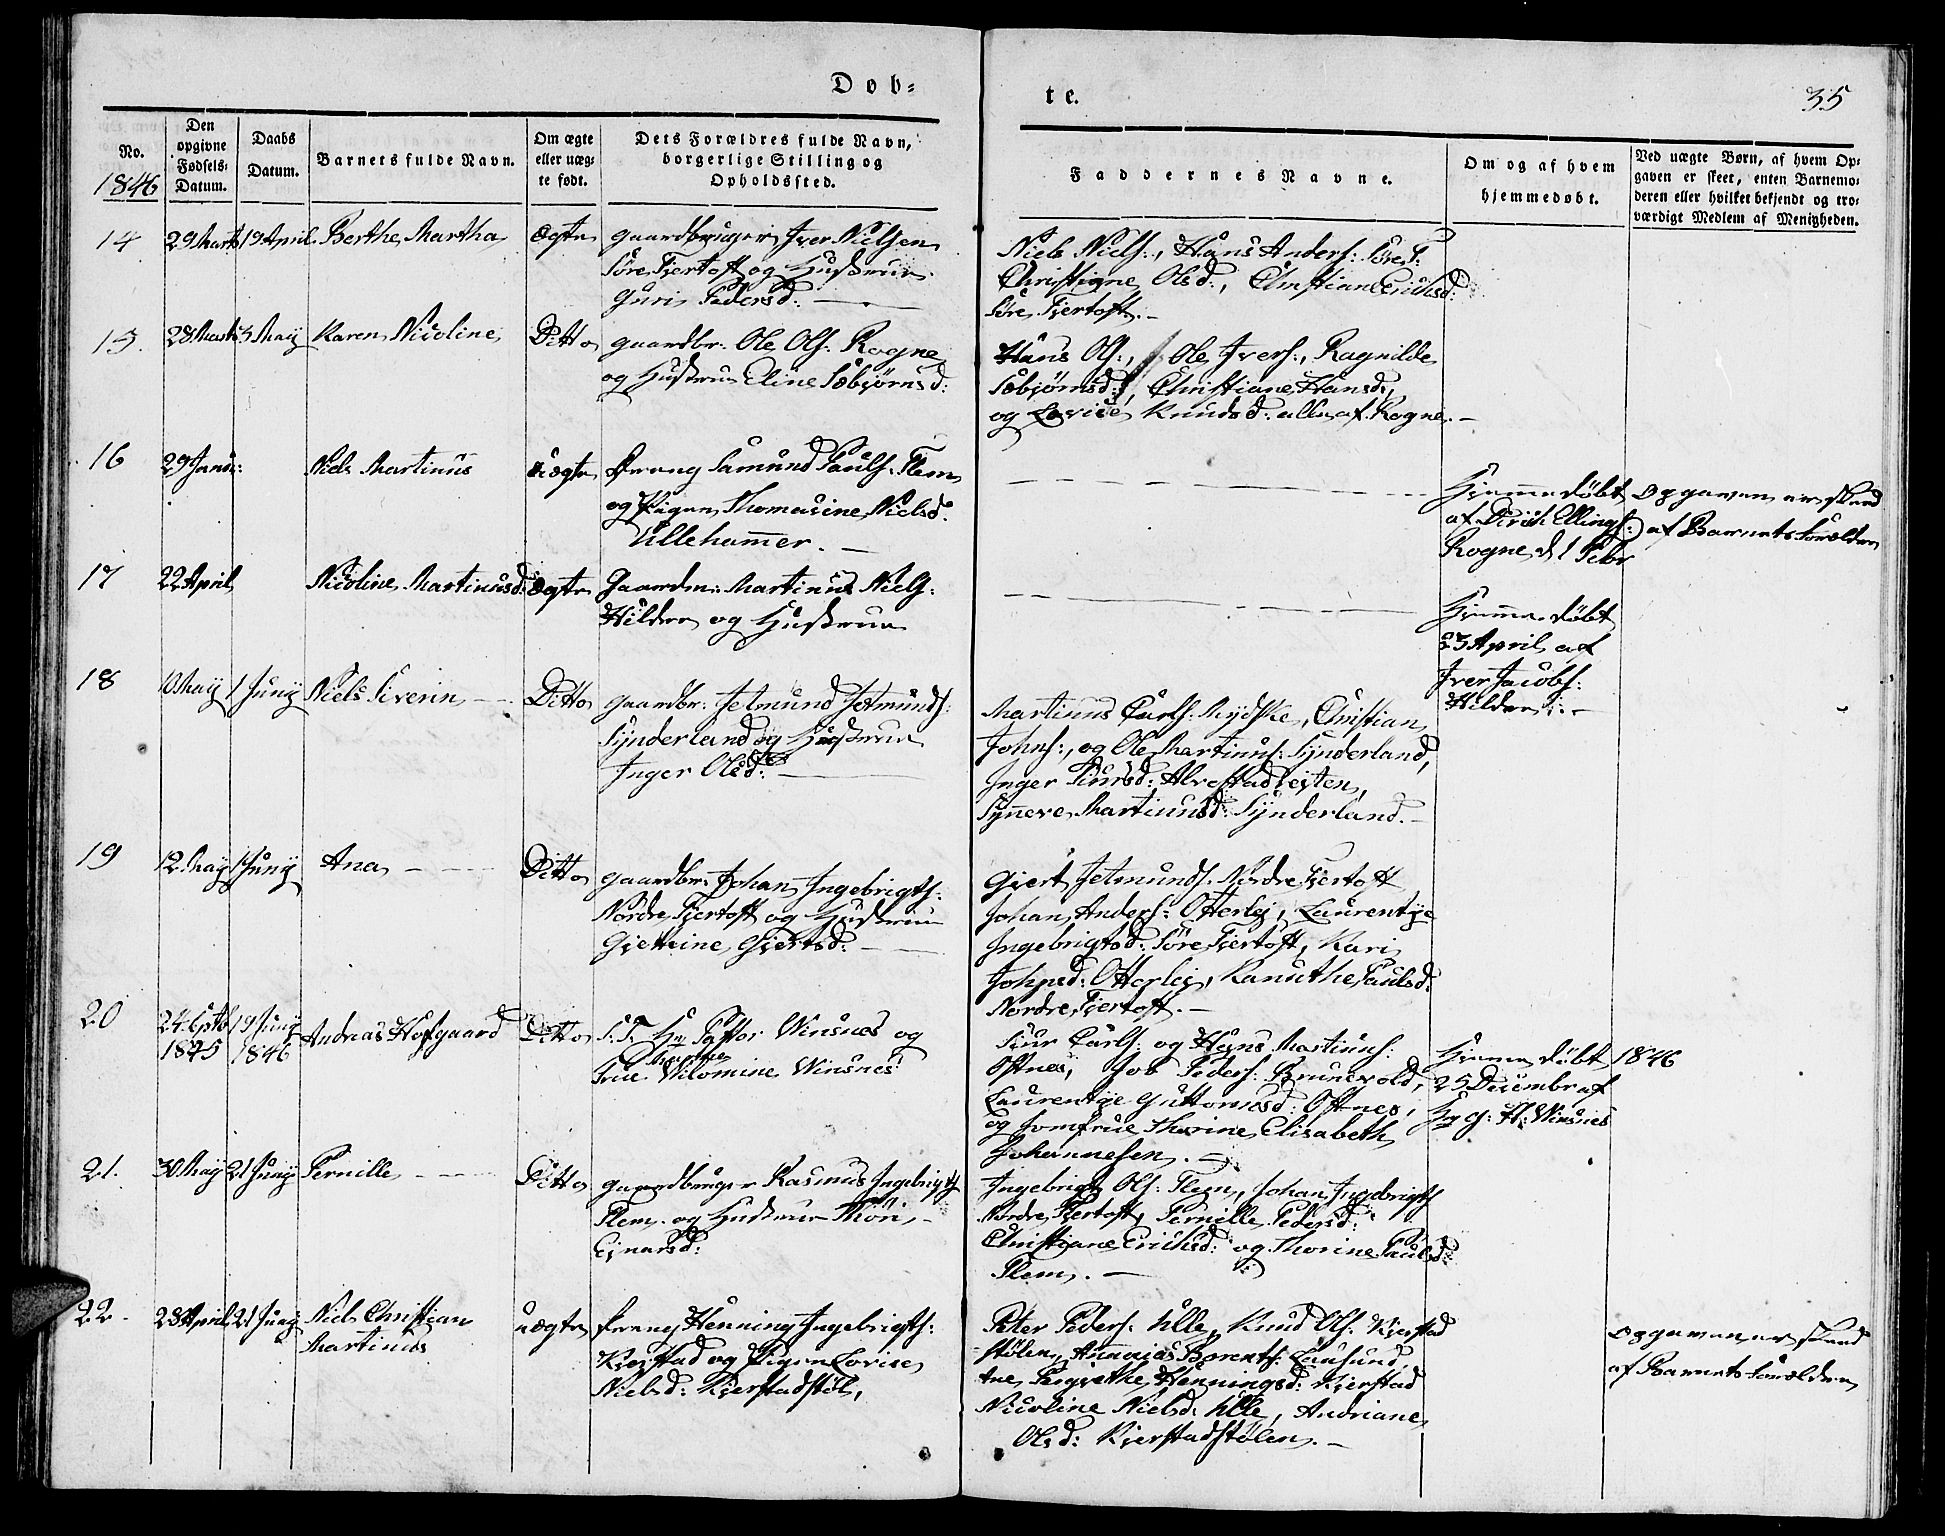 Døb-
te.
35
No.
1846
Den opgivne Fødsels-Datum.
Daabs Datum.
Barnets fulde Navn.
Om ægte eller uæg-te født.
Dets Forældres fulde Navn, borgerlige Stilling og Opholdssted.
Faddernes Navne.
Om og af hvem hjemmedøbt.
Ved uægte Børn, af hvem Op-gaven er skeet, enten Barnemo-deren eller hvilket bekjendt og tro-værdigt Medlem af Menigheden.
14
29 Marts
19 April
Berthe Martha
Ægte
Gaardbruger Iver Nielsen
Søre Fjertoft og Hustrue
Guri Pedersd:
Niels Niels:, Hans Anders: Søre F:
Christiane Olsd:, Christiane Erichsd:
Søre Fjertoft.
15.
28 Marts
3 May
Karen Nicoline
Ditto
Gaardbr: Ole Ols: Rogne
og Hustrue Eline Sæbjørnsd:
Hans Ols:, Ole Ivers:, Ragnilde
Sæbjørnsd:, Christiane Hansd:,
og Lovise Knudsd: alle af Rogne.
16
29 Janu:
Niels Martinus
uægte
Dreng Samund Pauls: Flem
og Pigen Thomasine Nielsd:
Ullehammer.
Hjemmedøbt
af Dirich Ellings:
Rogne d. 1 Febr
Opgaven er skeed
af Barnets Forældre
17
22 April
Nicoline Martinusd:
Ægte
Gaardm: Martinus Niels:
Hildre og Hustrue
Hjemmedøbt
23 April af
Iver Jacobs:
Hildre
18
10 May
1 Juny
Niels Siverin
Ditto
Gaardbr: Jetmund Jetmunds:
Synderland og Hustrue
Inger Olsd:
Martinus Carls: Mydske, Christian
Johns:, og Ole Martinus: Synderland,
Inger Siursd: Alvestadrejten,
Synneve Martinusd: Synderland.
19
12 May
1 Juny
Ana
Ditto
Gaardbr: Johan Ingebrigts:
Nordre Fjertoft og Hustrue
Gjertine Gjertsd:
Gjert Jetmunds: Nordre Fjertoft
Johan Anders: Otterlej, Laurentje
Ingebrigtsd: Søre Fjertoft, Kari
Johnsd: Otterlej, Kanuthe Paulsd:
Nordre Fjertoft.
20
24 Septb
1845
19 Juny
1846
Andreas Hofgaard
Ditto
S: T. Hr Pastor Winsnes og
Frue Wilomine Winsnes
Siur Carls: og Hans Martinus:
Østnes, Job Peders: Brunevold,
Laurentje Guttormsd: Østnes,
og Jomfrue Thorine Elisabeth
Johannesen.
Hjemmedøbt
25 Decembr af
Hr G: H: Winsnes
1846
21.
30 May
21 Juny
Pernille
Ditto
Gaardbruger Rasmus Ingebrigts
Flem og Hustrue Thøri
Ejnarsd:
Ingebrigt Ols: Flem, Johan Ingebrigts
Nordre Fjertoft, Pernille Pedersd:
Christiane Erichsd: og Thorine Paulsd:
Flem.
22.
23 April
21 Juny
Niels Christian
Martinus
uægte
Dreng Henning Ingebrigts:
Kjerstad og Pigen Lovise
Nielsd: Kjerstadstøl,
Peter Peders: Ulle, Knud Ols: Kjerstad
støle, Annanias Bernts: Lausund
Henningsd: Kjerstad
Nicoline Nielsd: Ulle, Andriane
Olsd: Kjerstadstølen.
Opgaven er skeed
af Barnets Forældre